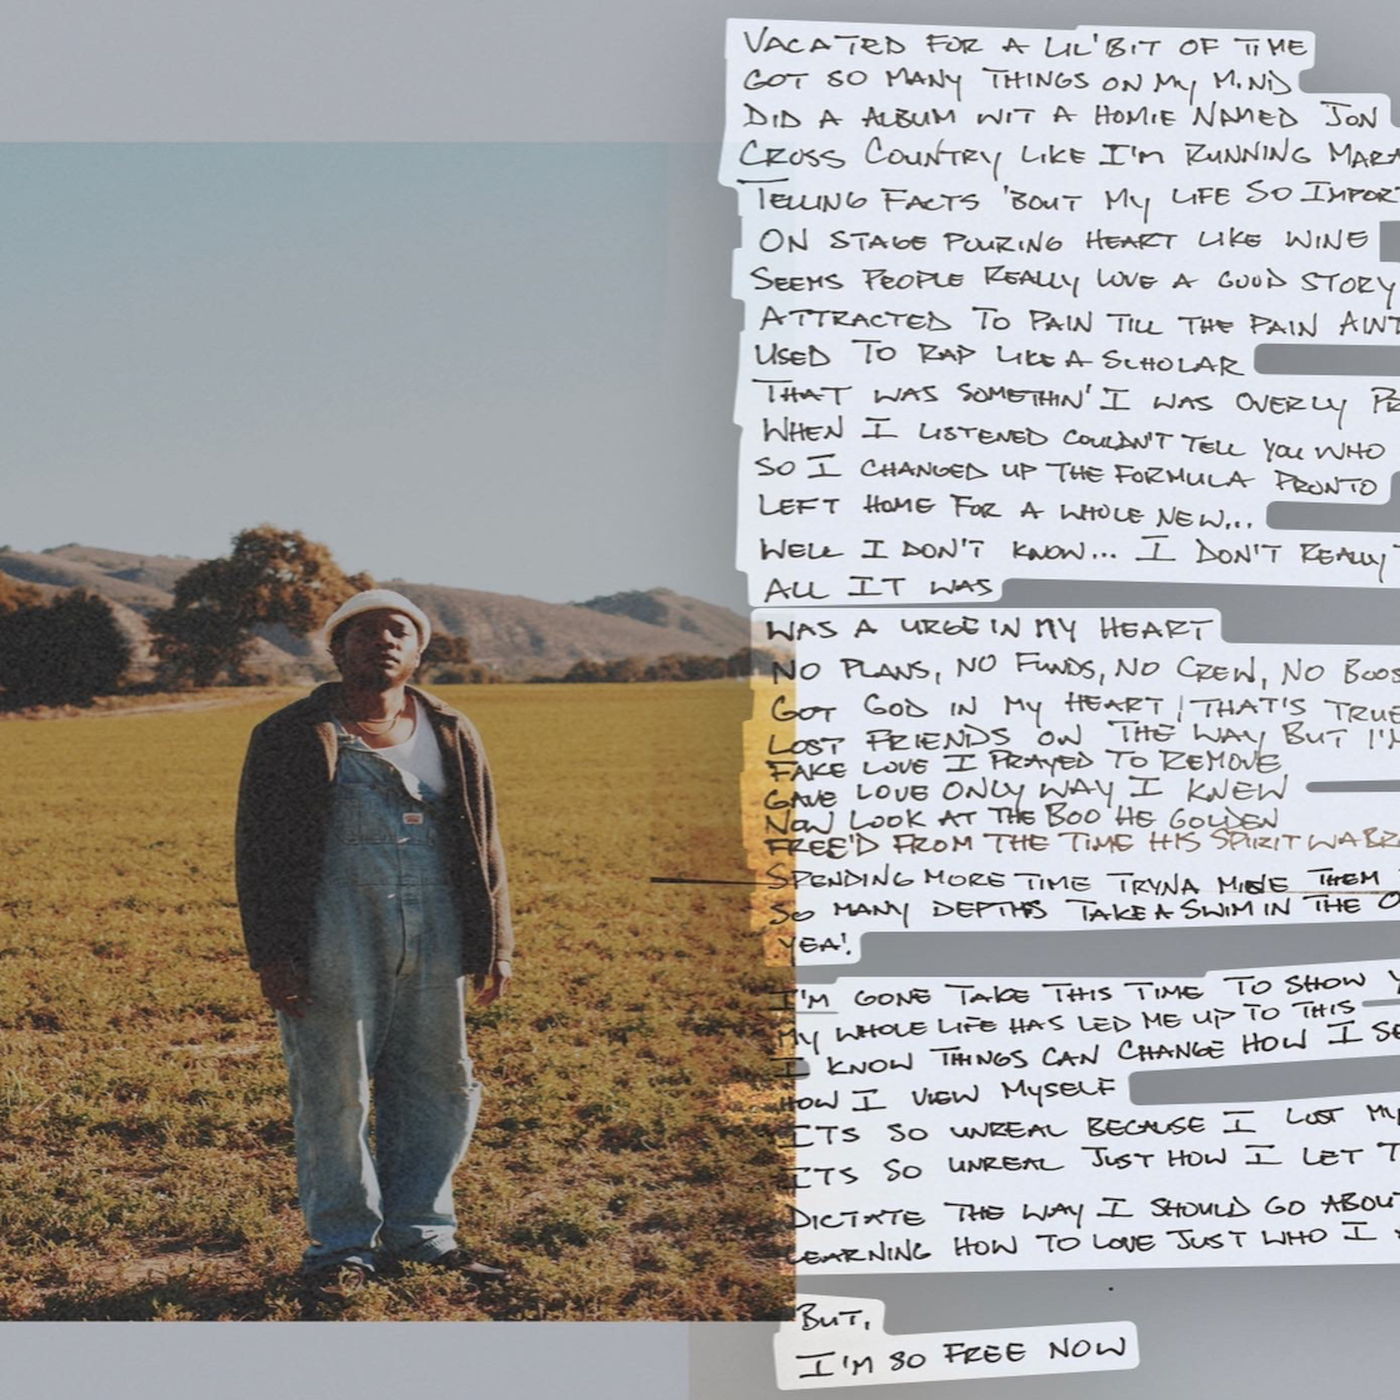 VACATED FOR A LIL' BIT OF TIME
GOT SO MANY THINGS ON MY MIND
DID A ALBUM WIT A HOMIE NAMED JON
CROSS COUNTRY LIKE I'M RUNNING MARA
TELLING FACTS 'BOUT MY LIFE SO IMPOR
ON STAGE POURING HEART LIKE WINE
SEEMS PEOPLE REALLY LOVE A GOOD STORY
ATTRACTED TO PAIN TILL THE PAIN AINT
USED TO RAP LIKE A SCHOLAR
THAT WAS SOMETHIN' I WAS OVERLY PR
WHEN I LISTENED COULDN'T TELL YOU WHO
SO I CHANGED UP THE FORMULA PRONTO
LEFT HOME FOR A WHOLE NEW...
WELL I DON'T KNOW... I DON'T REALLY
ALL IT WAS
WAS A URGE IN MY HEART
NO PLANS, NO FUNDS, NO CREW, NO BOOS
GOT GOD IN MY HEART THAT'S TRUE
LOST FRIENDS ON THE WAY BUT I'M
FAKE LOVE I PRAYED TO REMOVE
GAVE LOVE ONLY WAY I KNEW
NOW LOOK AT THE BOO HE GOLDEN
FREE'D FROM THE TIME HIS SPIRIT WA BR
SPENDING MORE TIME TRYNA MINE THEM
SO MANY DEPTHS TAKE A SWIM IN THE O
YEA!
I'M GONE TAKE THIS TIME TO SHOW Y
MY WHOLE LIFE HAS LED ME UP TO THIS
I KNOW THINGS CAN CHANGE HOW I SE
HOW I VIEW MYSELF
ITS SO UNREAL BECAUSE I LOST MY
ITS SO UNREAL JUST HOW I LET T
DICTATE THE WAY I SHOULD GO ABOUT
LEARNING HOW TO LOVE JUST WHO I
BUT,
I'M SO FREE NOW